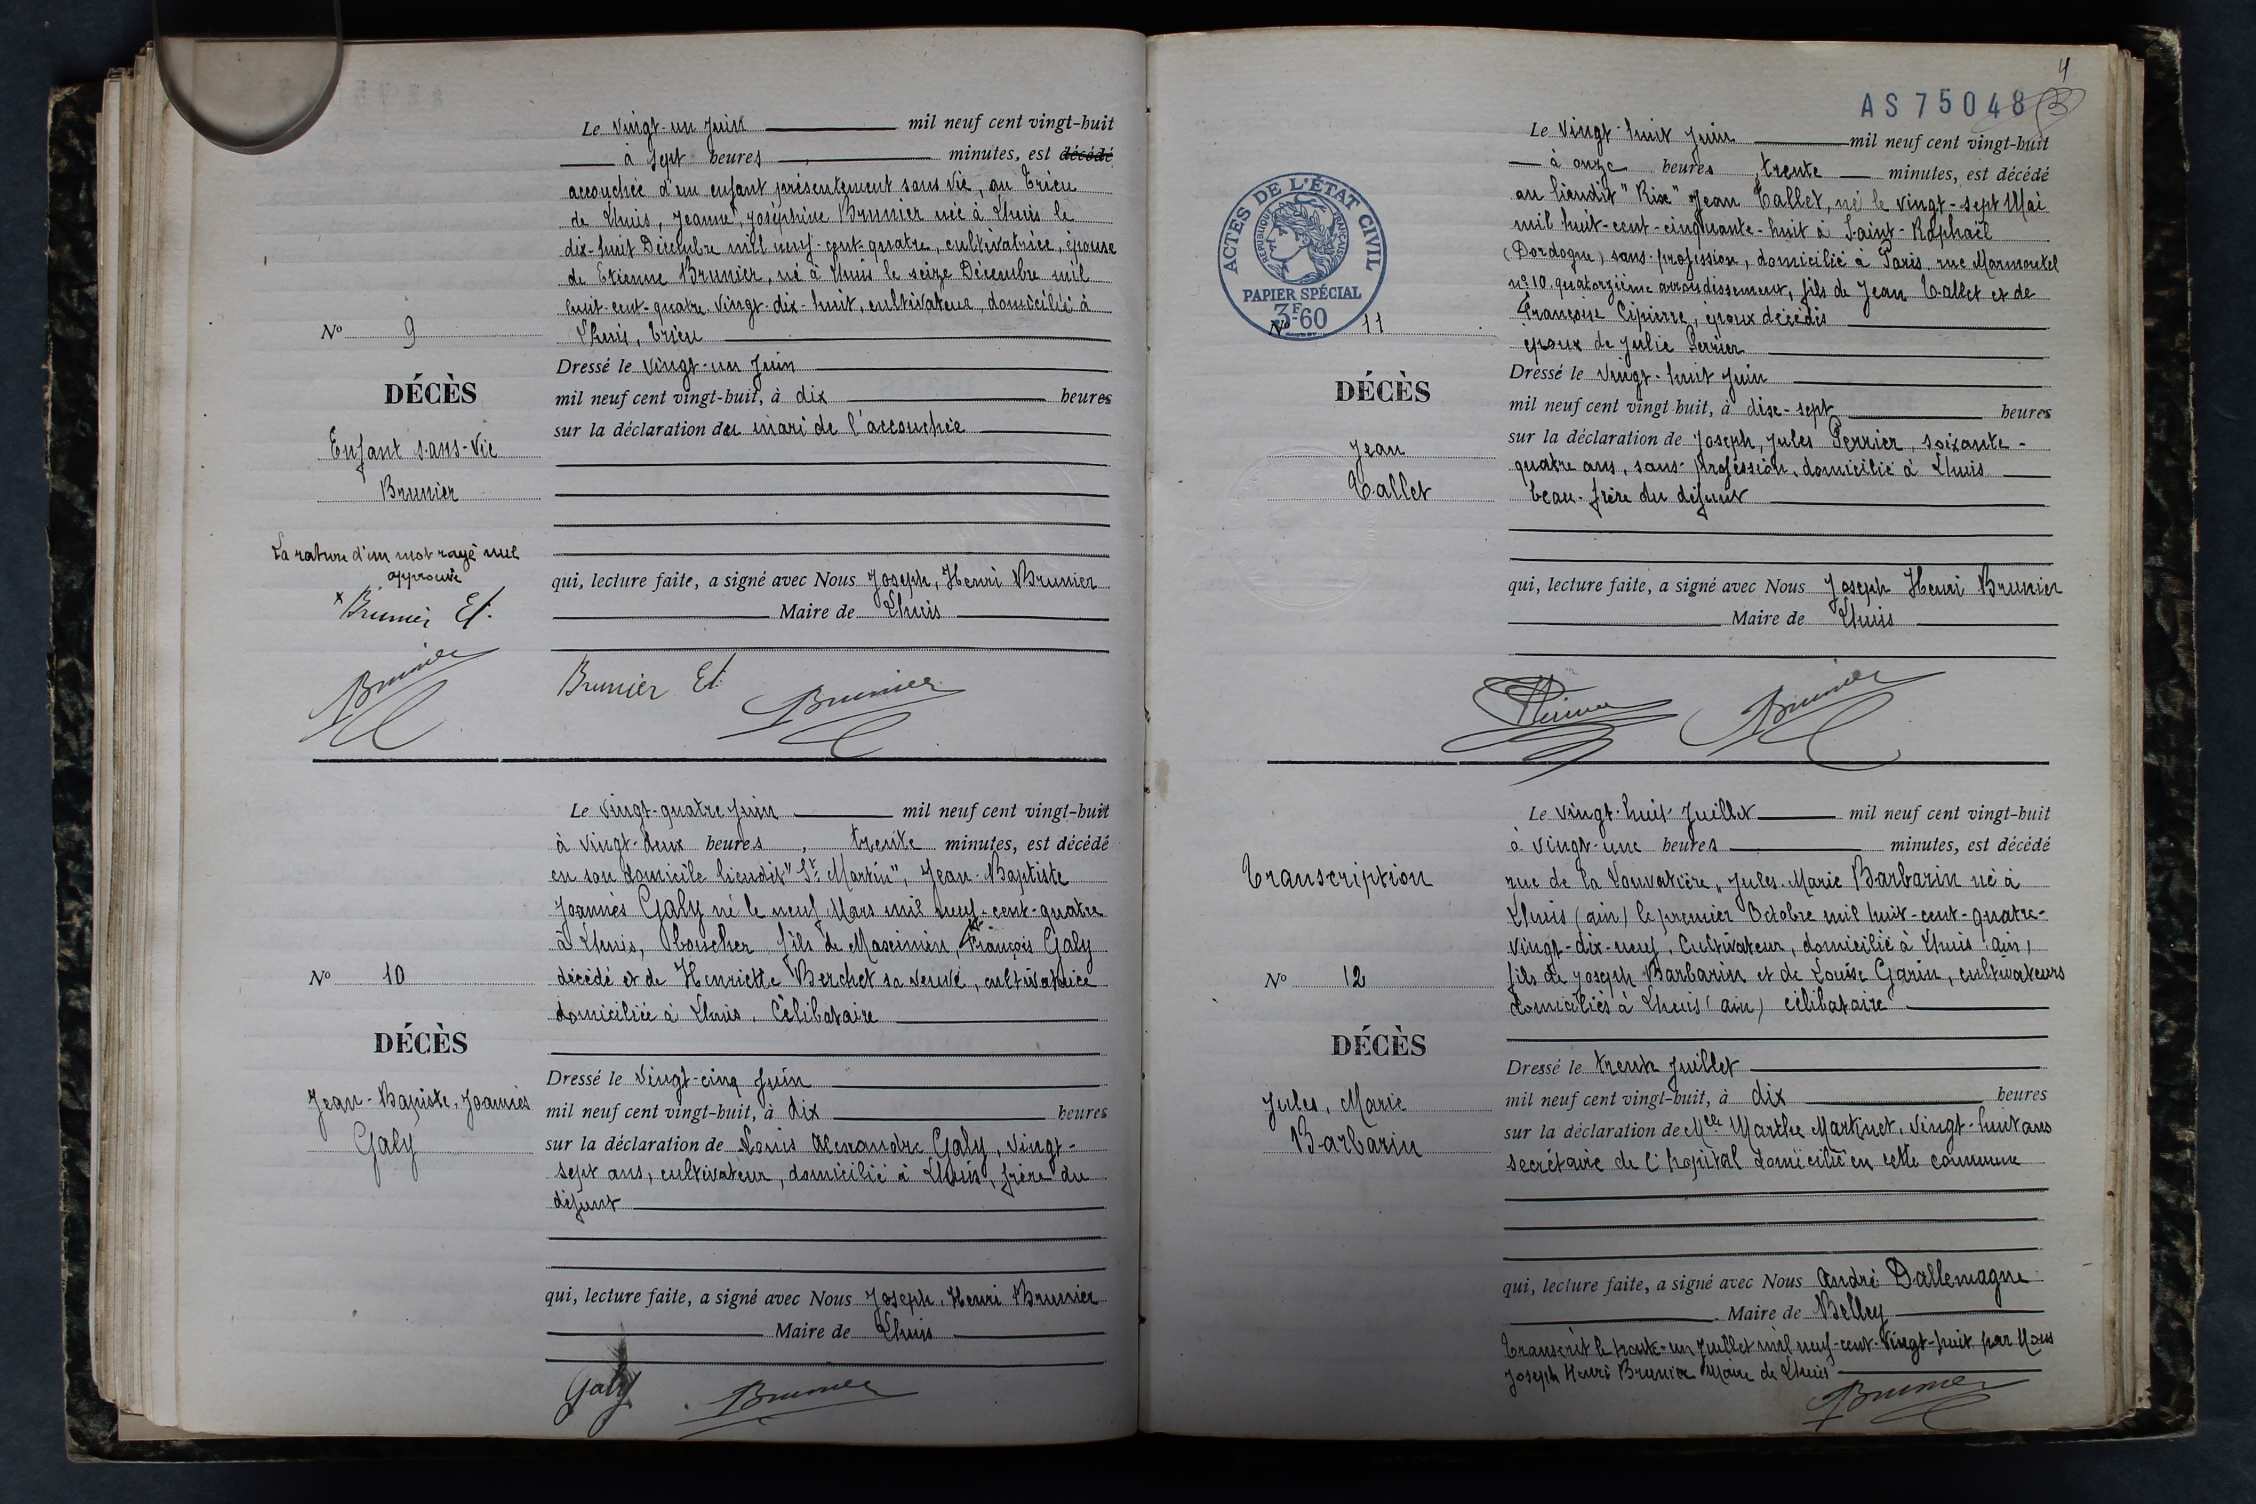 Le vingt-un juin mil neuf cent vingt-huit
à sept heures minutes, est décédé
accouchée d'un enfant présentement sans vie, au Trieu
de Lhuis, Jeanne, Joséphine Brunier née à Lhuis le
dix-huit Décembre mil neuf-cent-quatre, cultivatrice, épouse
de Etienne Brunier, né à Lhuis le seize Décembre mil
huit-cent-quatre-vingt-dix-huit, cultivateur domicilié à
Lhuis, Trieu
Nº 9
DÉCÈS
Enfant sans-vie
Brunier
La rature d'un mot rayé nul
approuvé
Brunier Et.
Brunier
Dressé le vingt-un Juin
mil neuf cent vingt-huit, à dix heures
sur la déclaration du mari de l'accouchée
qui, lecture faite, a signé avec Nous Joseph, Henri Brunier
Maire de Lhuis
Brunier Et
Brunier
Le vingt-quatre juin mil neuf cent vingt-huit
à vingt-deux heures, trente minutes, est décédé
en son domicile lieudit "St Martin", Jean-Baptiste
Joannès Galy né le neuf Mars mil neuf-cent-quatre
à Lhuis, boucher, fils de Maximin, François Galy
décédé et de Henriette Berchet sa veuve, cultivatrice
domiciliée à Lhuis, Célibataire
Nº 10
DÉCÈS
Jean-Baptiste, Joannès
Galy
Dressé le vingt-cinq juin
mil neuf cent vingt-huit, à dix heures
sur la déclaration de Louis Alexandre Galy, vingt-
sept ans, cultivateur, domicilié à Lhuis, frère du
défunt
qui, lecture faite, a signé avec Nous Joseph, Henri Brunier
Maire de Lhuis
Galy
Brunier
4
AS 75048
ACTES DE L'ÉTAT CIVIL
RÉPUBLIQUE FRANÇAISE
PAPIER SPÉCIAL
3F-60
Le vingt-huit juin mil neuf cent vingt-huit
à onze heures, trente minutes, est décédé
au lieudit "Rix" Jean Tallet, né le vingt-sept Mai
mil huit-cent-cinquante-huit à Saint-Raphaël
(Dordogne) sans profession, domicilié à Paris, rue Marmontel
nº 10 quatorzième arrondissement, fils de Jean Tallet et de
Françoise Cipierre, époux décédés
époux de Julie Perrier
Nº 11
DÉCÈS
Jean
Tallet
Dressé le vingt-huit juin
mil neuf cent vingt huit, à dix-sept heures
sur la déclaration de Joseph, Jules Perrier, soixante-
quatre ans, sans profession, domicilié à Lhuis
beau-frère du défunt
qui, lecture faite, a signé avec Nous Joseph Henri Brunier
Maire de Lhuis
Brunier
Le vingt-huit Juillet mil neuf cent vingt-huit
à vingt-une heures minutes, est décédé
rue de la Louvatière, Jules Marie Barbarin né à
Lhuis (ain) le premier Octobre mil huit-cent-quatre-
vingt-dix-neuf, Cultivateur, domicilié à Lhuis (ain)
fils de Joseph Barbarin et de Louise Garin, cultivateurs
domiciliés à Lhuis (ain) célibataire
Transcription
Nº 12
DÉCÈS
Jules, Marie
Barbarin
Dressé le trente Juillet
mil neuf cent vingt-huit, à dix heures
sur la déclaration de Melle Marthe Martinet, vingt-huit ans
secrétaire de l'hopital domicilié en cette commune
qui, lecture faite, a signé avec Nous André Dallemagne
Maire de Belley
Transcrit le trente-un Juillet mil neuf-cent-vingt-huit par Nous
Joseph Henri Brunier Maire de Lhuis
Brunier